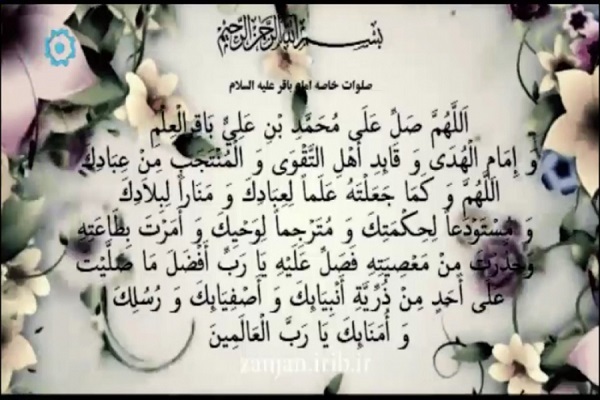 بسم الله الرحمن الرحیم
صلوات خاصه امام باقر علیه السلام
اَللَّهُمَّ صَلِّ عَلَى مُحَمَّدِ بْنِ عَلِيٍّ بَاقِرِ الْعِلْمِ
وَ إِمَامِ الْهُدَى وَ قَايِدِ أَهْلِ التَّقْوَى وَ الْمُنْتَجَبِ مِنْ عِبَادِكَ
اللَّهُمَّ وَ كَمَا جَعَلْتَهُ عَلَماً لِعِبَادِكَ وَ مَنَاراً لِبِلاَدِكَ
وَ مُسْتَوْدَعاً لِحِكْمَتِكَ وَ مُتَرْجِماً لِوَحْيِكَ وَ أَمَرْتَ بِطَاعَتِهِ
وَ حَذَّرْتَ مِنْ مَعْصِيَتِهِ فَصَلِّ عَلَيْهِ يَا رَبِّ أَفْضَلَ مَا صَلَّيْتَ
عَلَى أَحَدٍ مِنْ ذُرِّيَّةِ أَنْبِيَايِكَ وَ أَصْفِيَايِكَ وَ رُسُلِكَ
وَ أُمَنَايِكَ يَا رَبَّ الْعَالَمِينَ
zanjan.irib.ir